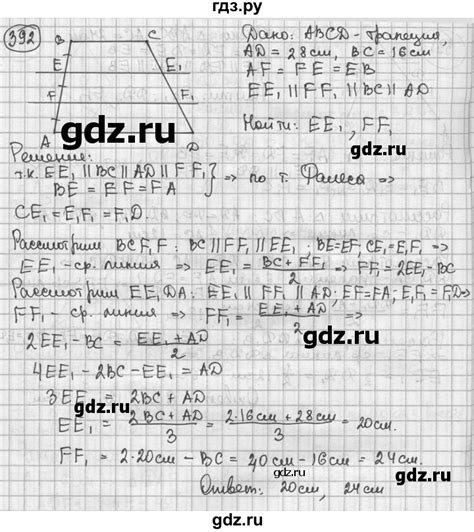 гдз.ру
392
B C
E E₁
F F₁
A D
Дано: ABCD - трапеция,
AD = 28 см, BC = 16 см
AF = FE = EB
EE₁ || FF₁ || BC || AD
Найти: EE₁, FF₁
gdz.ru
Решение:
т.к. EE₁ || BC || AD || FF₁
BE = EF = FA } => по т. Фалеса =>
CE₁ = E₁F₁ = F₁D.
gdz.ru
Рассмотрим BCF₁F: BC || FF₁ || EE₁: BE=EF, CE₁=E₁F₁ =>
EE₁ - ср. линия => EE₁ = (BC + FF₁)/2 => FF₁ = 2EE₁ - BC
Рассмотрим EE₁DA: EE₁ || FF₁ || AD: EF=FA; E₁F₁=F₁D =>
FF₁ - ср. линия => FF₁ = (EE₁ + AD)/2 =>
gdz.ru
2EE₁ - BC = (EE₁ + AD)/2
4EE₁ - 2BC - EE₁ = AD
3EE₁ = 2BC + AD
gdz.ru
EE₁ = (2BC + AD)/3 = (2·16см + 28см)/3 = 20см.
FF₁ = 2·20см - BC = 40см - 16см = 24см.
Ответ: 20см, 24см
gdz.ru